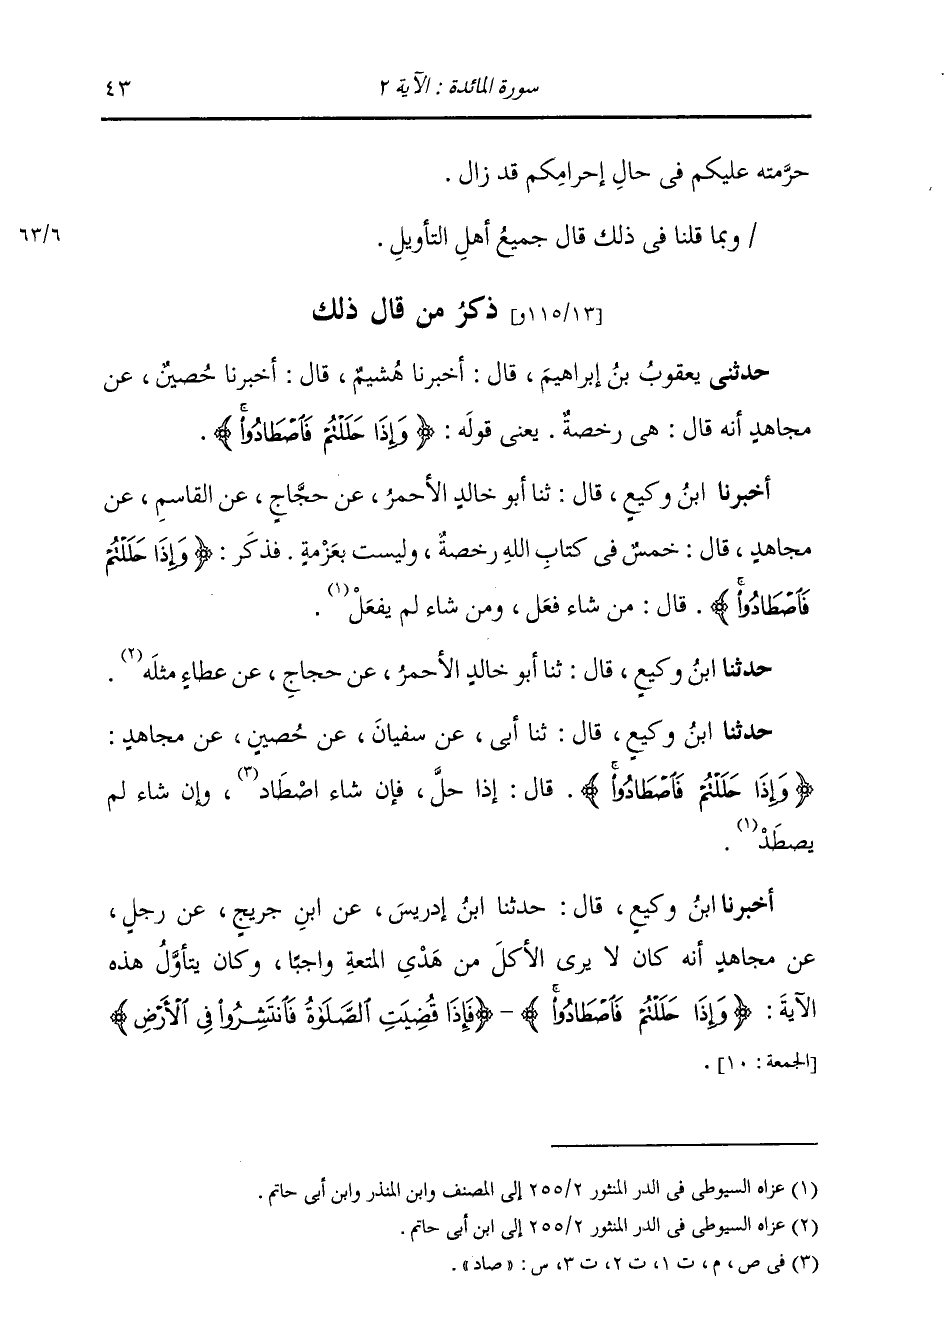 سورة المائدة : الآية ٢ ٤٣
حرَّمته عليكم فى حالِ إحرامِكم قد زال .
/ وبما قلنا فى ذلك قال جميعُ أهلِ التأويلِ . ٦٣/٦
[١١٥/١٣و] ذكرُ من قال ذلك
حدثنى يعقوبُ بنُ إبراهيمَ ، قال : أخبرنا هُشيمٌ ، قال : أخبرنا حُصينٌ ، عن
مجاهدٍ أنه قال : هى رخصةٌ . يعنى قولَه : ﴿ وَإِذَا حَلَلْتُمْ فَٱصْطَادُواْۚ ﴾ .
أخبرنا ابنُ وكيعٍ ، قال : ثنا أبو خالدٍ الأحمرُ ، عن حجَّاجٍ ، عن القاسمِ ، عن
مجاهدٍ ، قال : خمسٌ فى كتابِ اللهِ رخصةٌ ، وليست بعَزْمةٍ . فذكَر : ﴿ وَإِذَا حَلَلْتُمْ
فَٱصْطَادُواْۚ ﴾ . قال : من شاء فعَل ، ومن شاء لم يفعَلْ(١) .
حدثنا ابنُ وكيعٍ ، قال : ثنا أبو خالدٍ الأحمرُ ، عن حجاجٍ ، عن عطاءٍ مثلَه(٢) .
حدثنا ابنُ وكيعٍ ، قال : ثنا أبى ، عن سفيانَ ، عن حُصينٍ ، عن مجاهدٍ :
﴿ وَإِذَا حَلَلْتُمْ فَٱصْطَادُواْۚ ﴾ . قال : إذا حلَّ ، فإن شاء اصْطَاد(٣) ، وإن شاء لم
يصطَدْ(١) .
أخبرنا ابنُ وكيعٍ ، قال : حدثنا ابنُ إدريسَ ، عن ابنِ جريجٍ ، عن رجلٍ ،
عن مجاهدٍ أنه كان لا يرى الأكلَ من هَدْىِ المتعةِ واجبًا ، وكان يتأوَّلُ هذه
الآيةَ : ﴿ وَإِذَا حَلَلْتُمْ فَٱصْطَادُواْۚ ﴾ – ﴿فَإِذَا قُضِيَتِ ٱلصَّلَوٰةُ فَٱنتَشِرُواْ فِى ٱلْأَرْضِ ﴾
[الجمعة : ١٠] .
(١) عزاه السيوطى فى الدر المنثور ٢٥٥/٢ إلى المصنف وابن المنذر وابن أبى حاتم .
(٢) عزاه السيوطى فى الدر المنثور ٢٥٥/٢ إلى ابن أبى حاتم .
(٣) فى ص ، م ، ت ١، ت ٢، ت ٣، س : « صاد» .